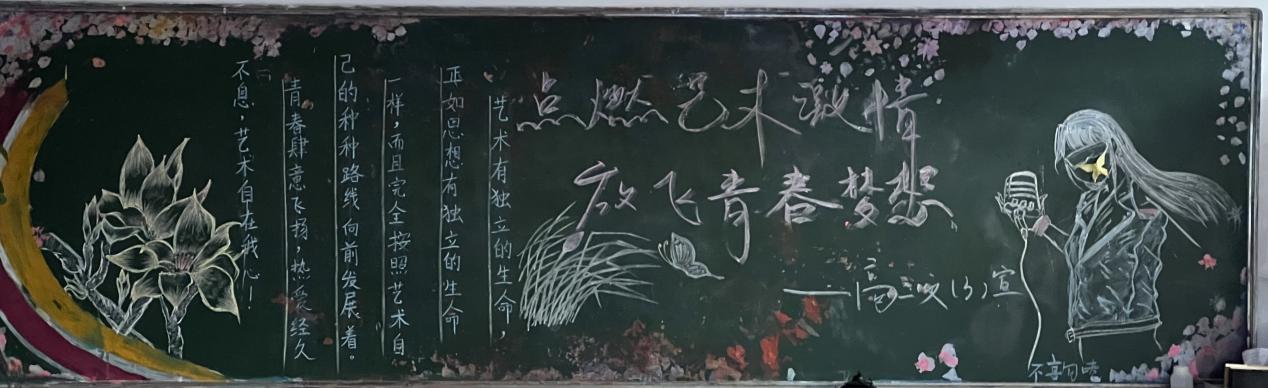 点燃艺术激情
放飞青春梦想
——高二文(3)宣
艺术有独立的生命,
正如思想有独立的生命
一样,而且完全按照艺术自
己的种种路线向前发展着。
青春肆意飞扬,热爱经久
不息,艺术自在我心!